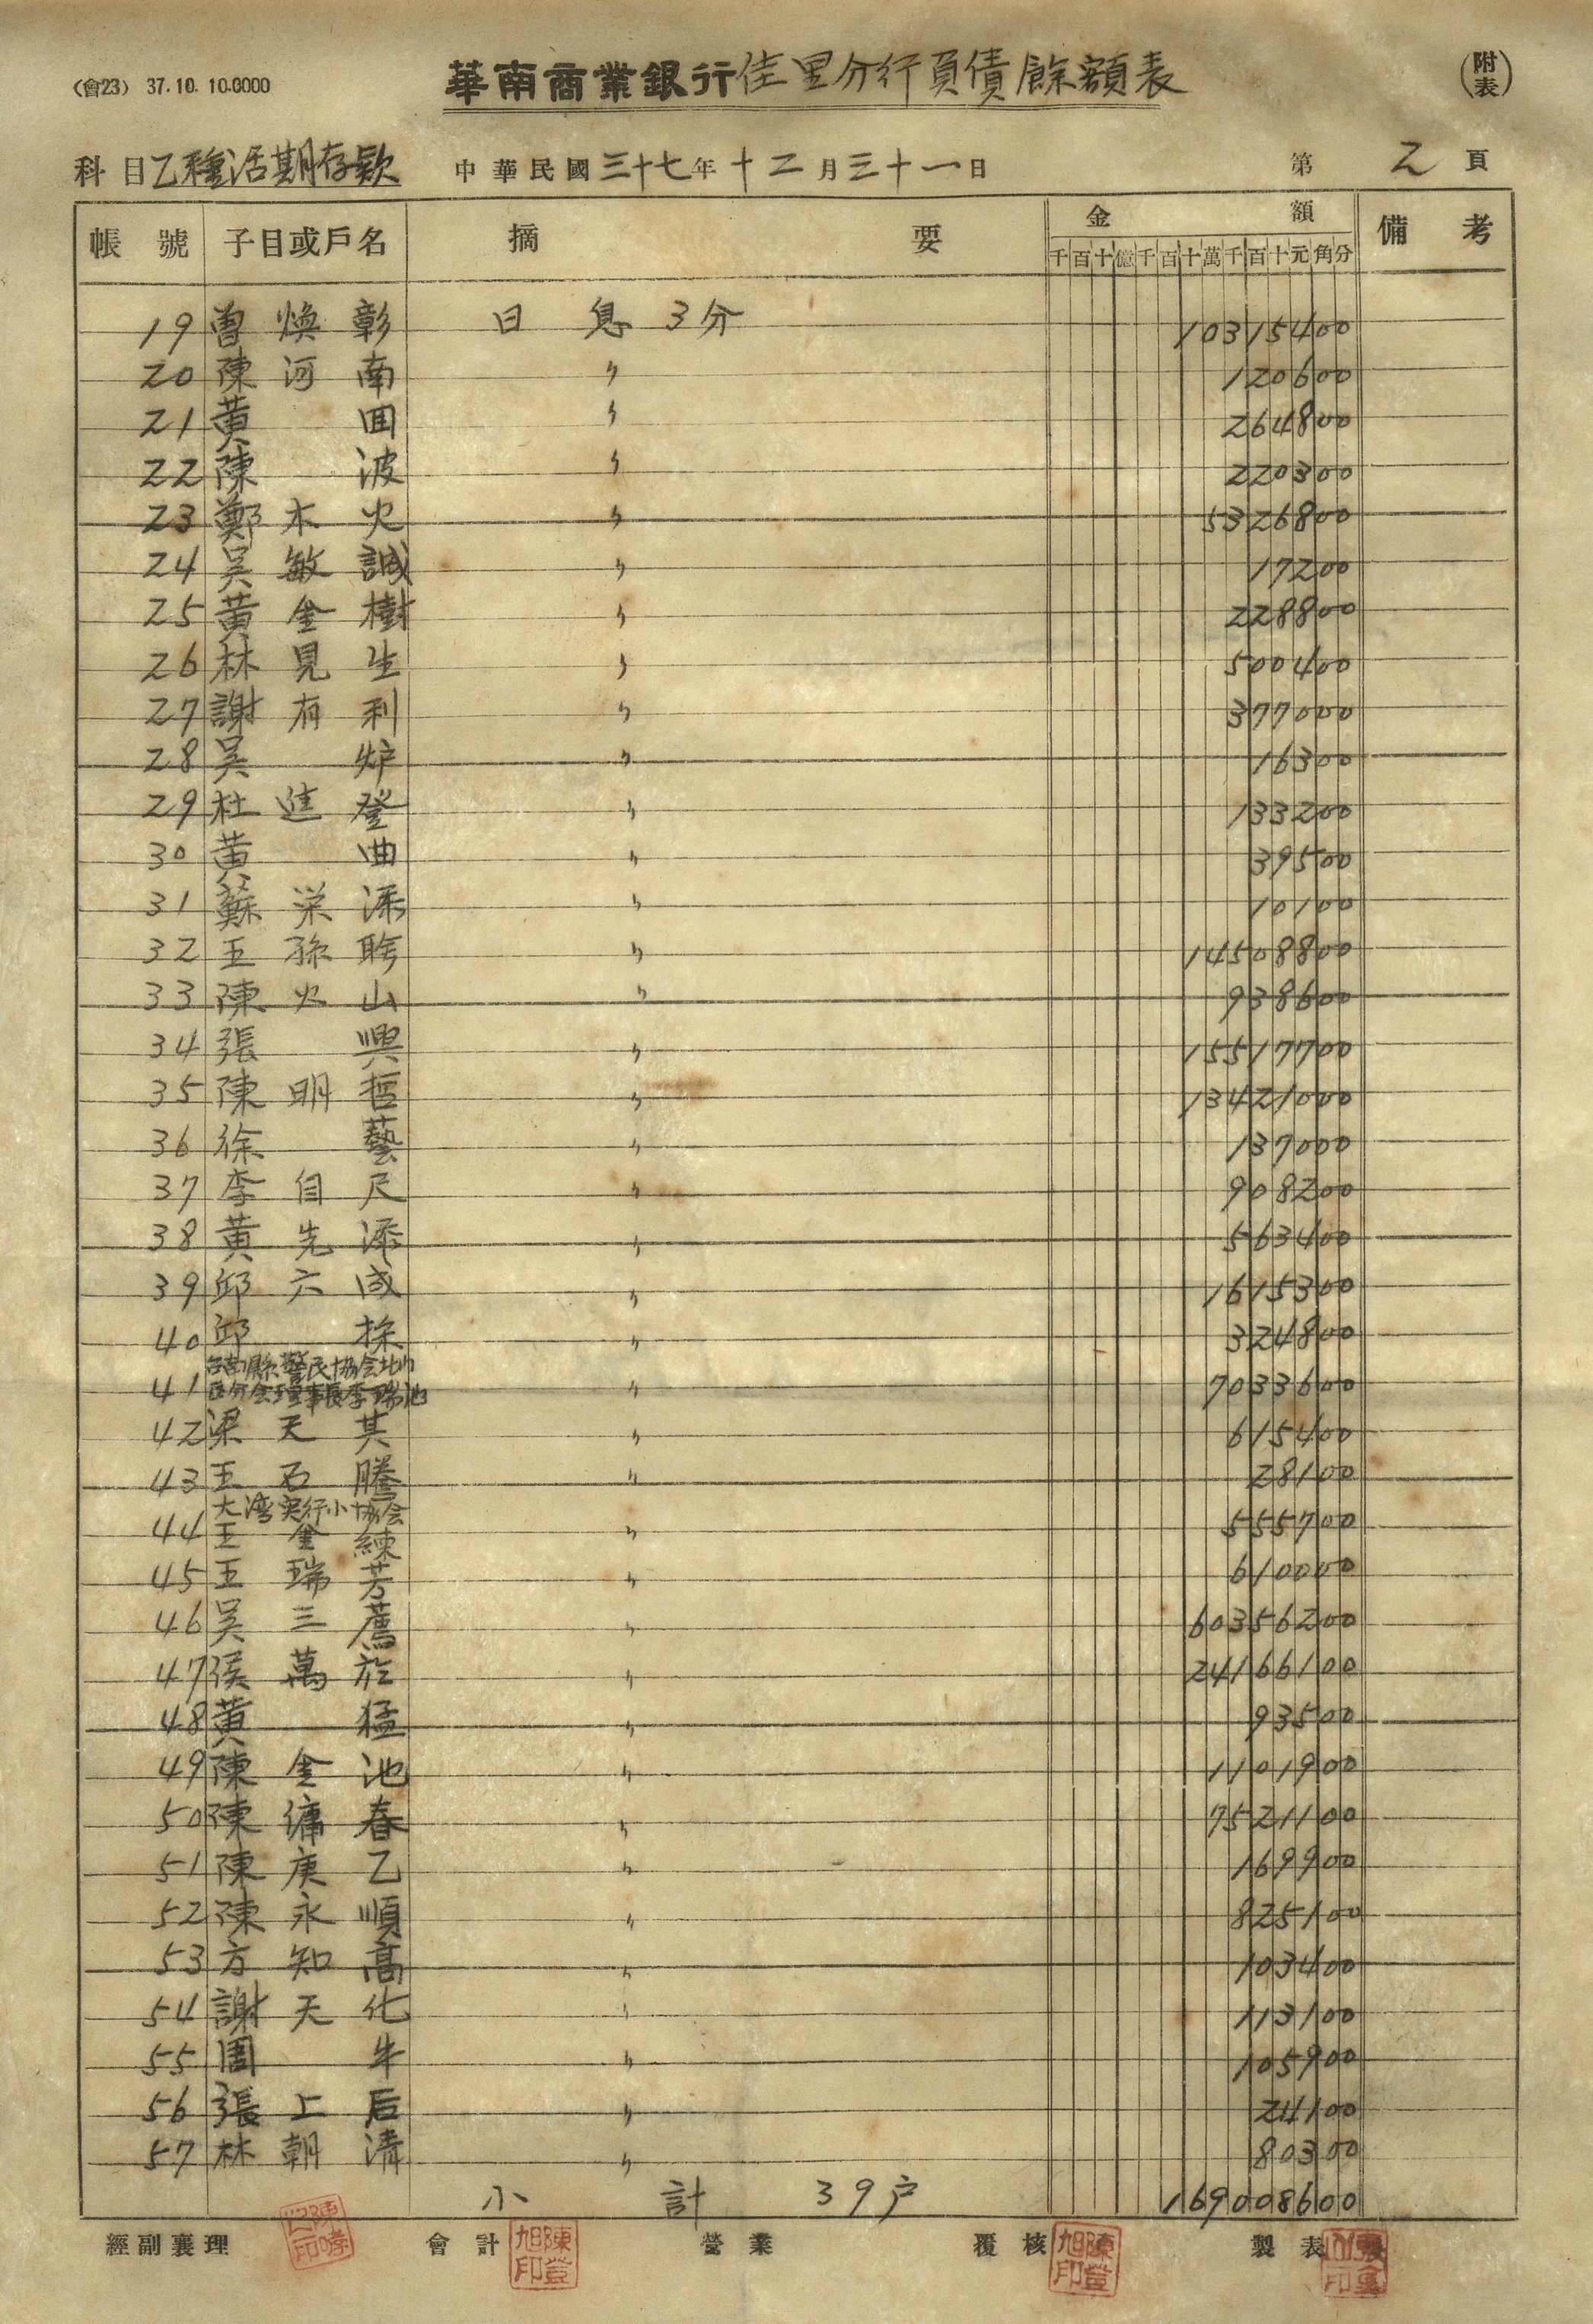 (會23) 37. 10. 10.0000
華南商業銀行佳里分行負債餘額表
(附表)
科目乙種活期存款 中華民國三十七年十二月三十一日 第乙頁
帳號 子目或戶名 摘要 金額 備考
千百十億千百十萬千百十元角分
19 曾煥彰 日息3分 10315400
20 陳河南 〃 120600
21 黃囬 〃 264800
22 陳波 〃 220300
23 鄭木火 〃 5326800
24 吳敏誠 〃 17200
25 黃金樹 〃 228800
26 林見生 〃 500400
27 謝有利 〃 377000
28 吳炉 〃 16300
29 杜進登 〃 133200
30 黃曲 〃 39500
31 蘇栄添 〃 10100
32 王孫聘 〃 14508800
33 陳火山 〃 938600
34 張興 〃 15517700
35 陳明哲 〃 13421000
36 徐藝 〃 137000
37 李自尺 〃 908200
38 黃先添 〃 563400
39 邱六成 〃 1615300
40 邱採 〃 324800
41 台南縣警民協会北门
區分会理事長李瑞池 〃 7033600
42 梁天其 〃 615400
43 王石騰 〃 28100
44 大湾実行小協会
王金練 〃 555700
45 王瑞芳 〃 610000
46 吳三薦 〃 60356200
47 侯萬於 〃 24166100
48 黃猛 〃 93500
49 陳金池 〃 1101900
50 陳傭春 〃 7521100
51 陳庚乙 〃 169900
52 陳永順 〃 825100
53 方知高 〃 103400
54 謝天化 〃 113100
55 周牛 〃 105900
56 張上后 〃 24100
57 林朝清 〃 80300
小計 39户 169008600
經副襄理 會計 陳豈旭印 營業 覆核 陳豈旭印 製表